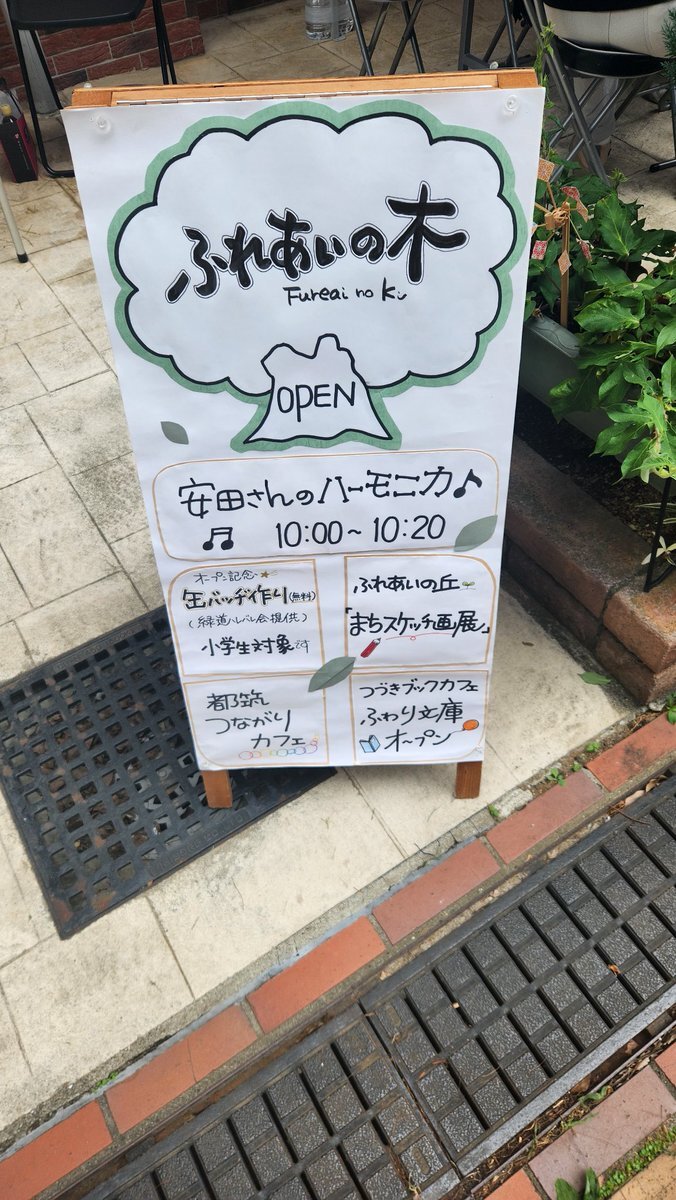 ふれあいの木
Fureai no Ki
OPEN
安田さんのハーモニカ♪
♫ 10:00～10:20
オープン記念
缶バッヂ作り(無料)
(緑道ハレバレ会提供)
小学生対象です
ふれあいの丘
「まちスケッチ画展」
都筑
つながり
カフェ
つづきブックカフェ
ふわり文庫
オープン